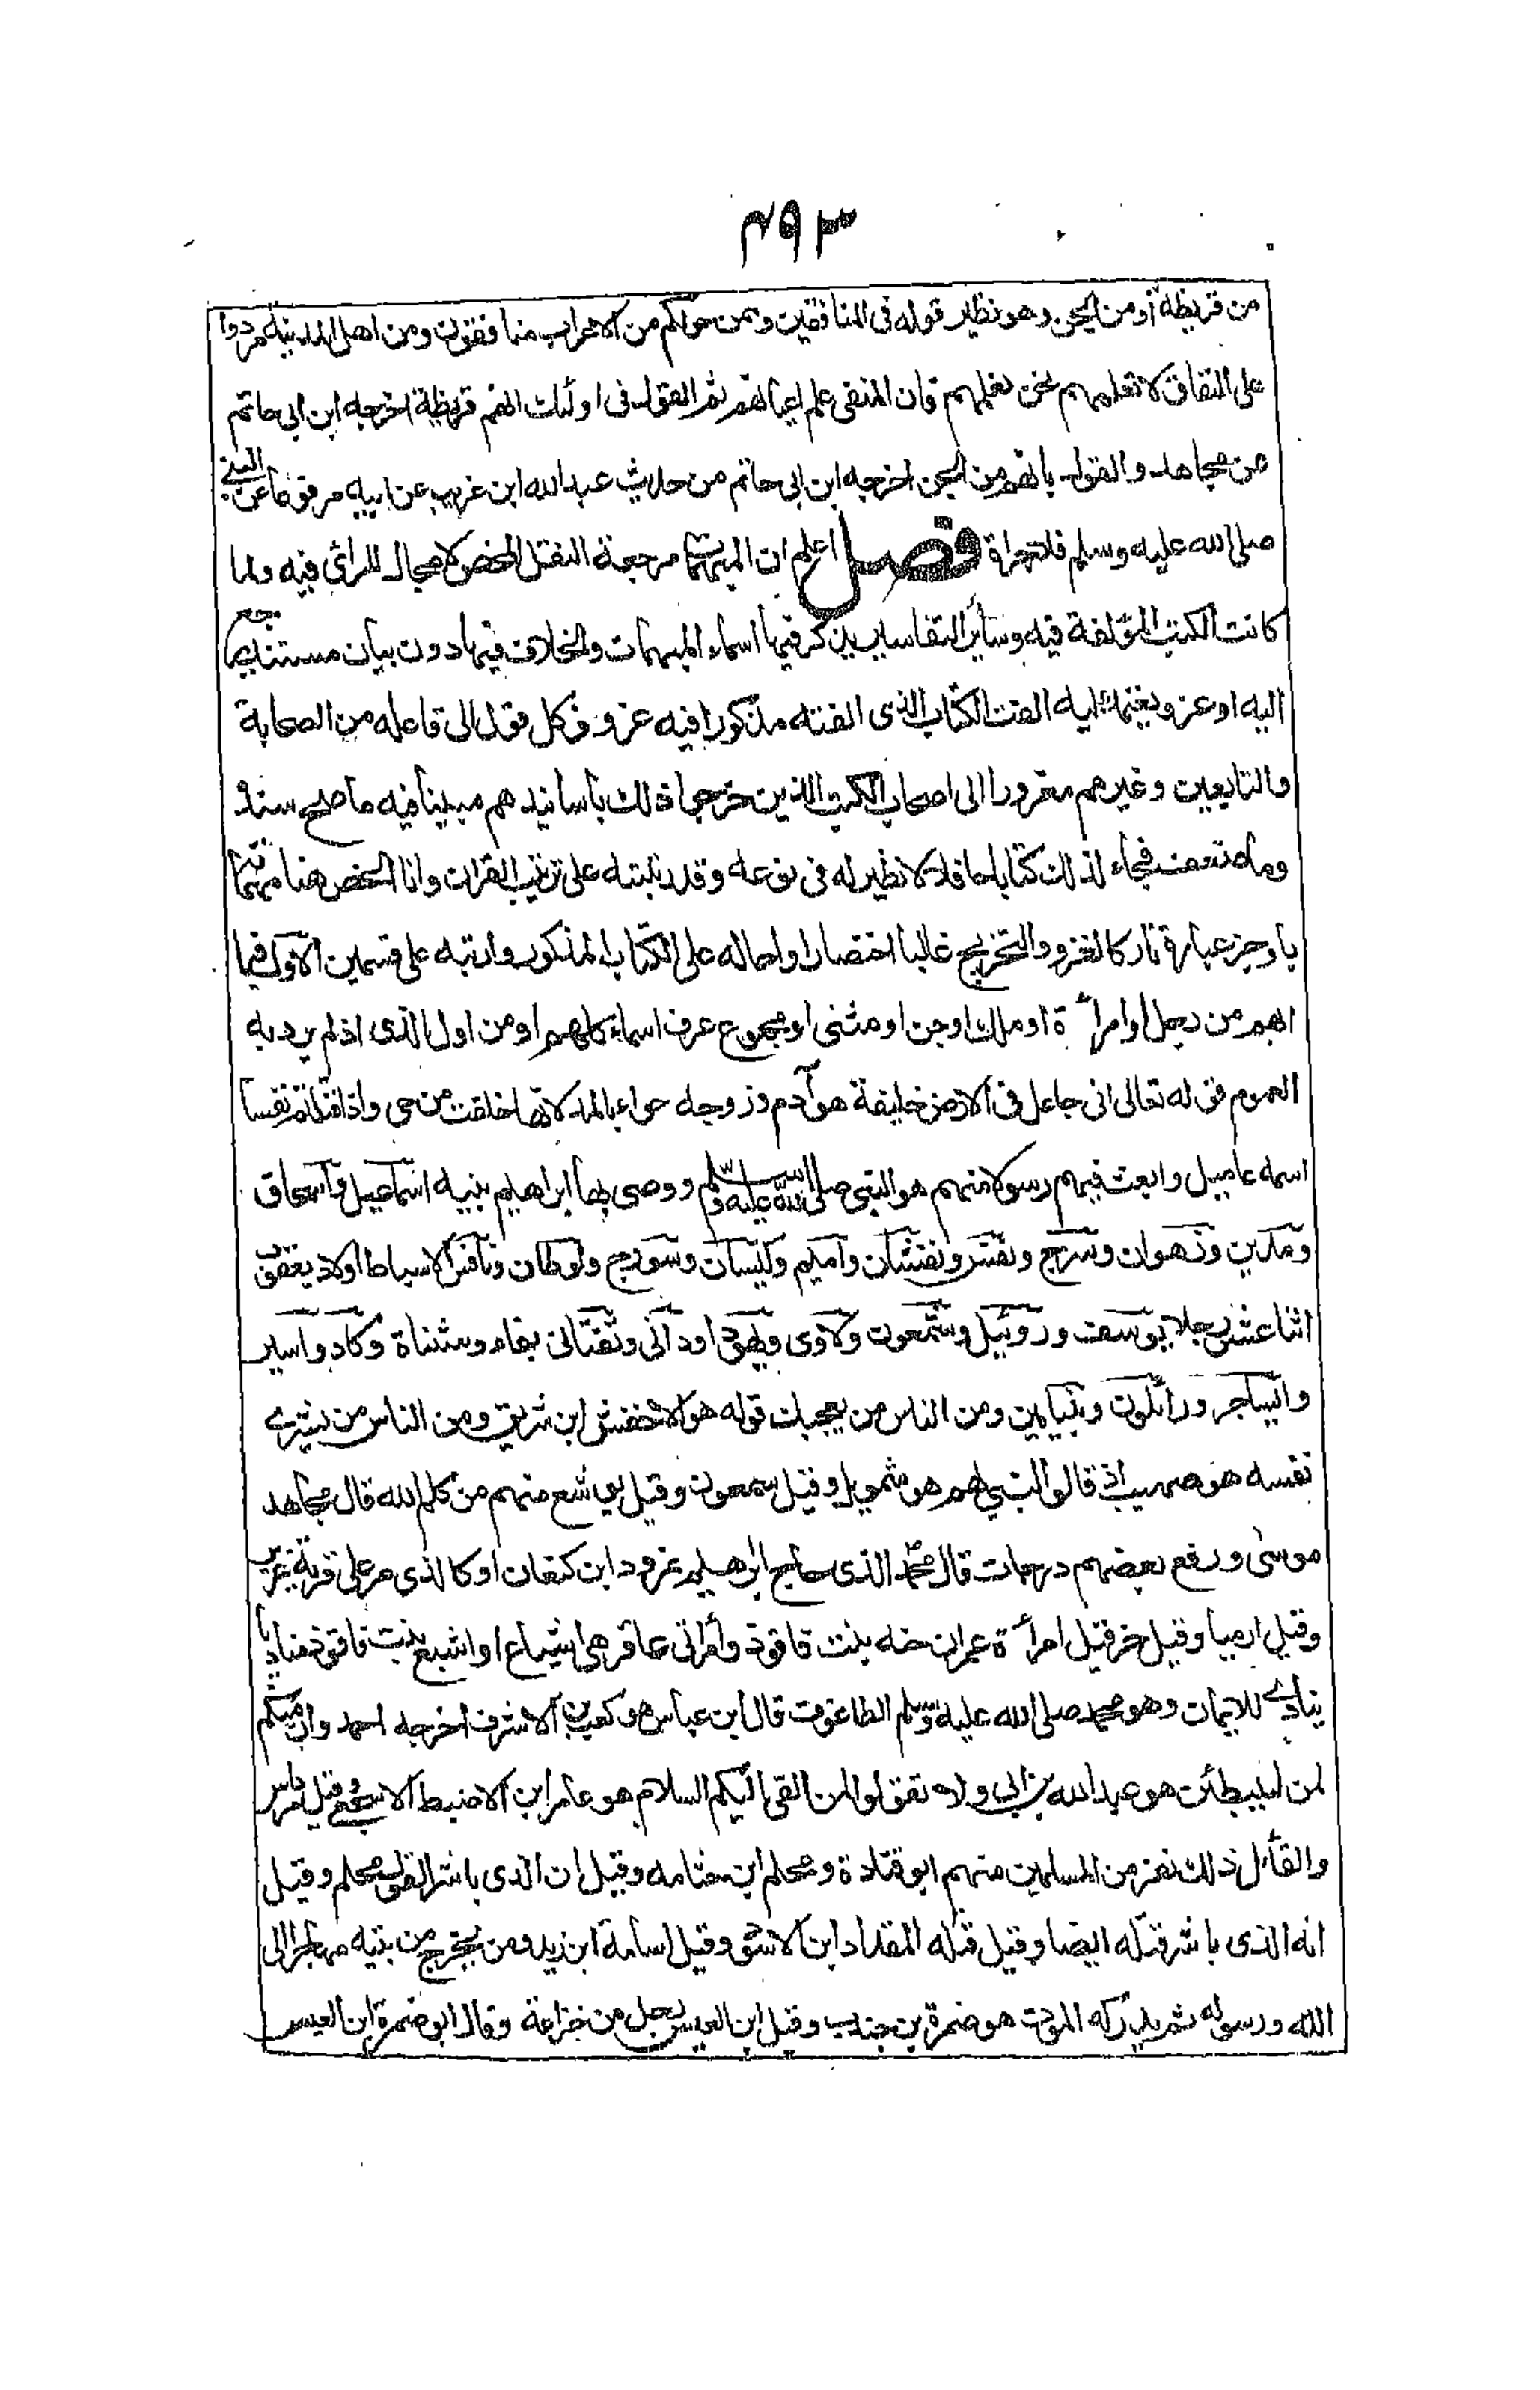 ٤٩٣
من قريظة أو من الجن وهو نظير قوله فى المنافقين وممن حولكم من الاعراب منافقون ومن اهل المدينة مردوا
على النفاق لا تعلمهم نحن نعلمهم فان المنفى علم اعيانهم ثم القول فى اولئك انهم قريظة اخرجه ابن ابى حاتم
من مجاهد والقول بانهم من الجن اخرجه ابن ابى حاتم من حديث عبد الله ابن غريب عن ابيه مرفوعا عن النبي
صلى الله عليه وسلم فلا جراة فصل اعلم ان المبهمات مرجعه النقل المحض لا مجال للرأى فيه ولما
كانت الكتب المؤلفة فيه وسائر التفاسير يذكر فيها اسماء المبهمات والخلاف فيها دون بيان مستند يرجع
اليه او عزو يعتمد عليه الفت الكتاب الذى الفته مذكورا فيه عزو كل قول الى قائله من الصحابة
والتابعين وغيرهم معزورا الى اصحاب الكتب الذين خرجوا ذلك بأسانيدهم مبينا فيه ما صح سنده
وما ضعف فجاء لذلك كتابا حافلا لا نظير له فى نوعه وقد رتبته على ترتيب القران وانا الخص هنا مهماته
باوجز عبارة تاركا لعزو والتخريج غالبا اختصارا واحاله على الكتاب المذكور وارتبه على قسمين الاول فيما
ابهم من رجل او امرأة او ملك او جن او مثنى او مجموع عرف اسماء كلهم او من اول الذى اذ لم يرد به
العموم قوله تعالى انى جاعل فى الارض خليفة هو آدم وزوجه حواء بالمد لانها خلقت من حى واذ قتلتم نفسا
اسمه عاميل وابعث فيهم رسولا منهم هو النبى صلى الله عليه وسلم ووصى بها ابراهيم بنيه اسماعيل واسحاق
ومدين وزهوان وسرج ونفش ونفشان واميم وكيسان وسورج ولوطان ونافش الاسباط اولاد يعقوب
اثنا عشر رجلا يوسف وروئيل وشمعون ولاوى ويهودا ودانى وتفتانى بفاء ومثناة وكاد واسير
وايساجر ورائلون وبنيامين ومن الناس من يعجبك قوله هو الاخنس ابن شريق ومن الناس من يشرے
نفسه هو صهيب اذ قالوا لنبي لهم هو شمويل وقيل سمعون وقيل يوشع منهم من كلم الله قال مجاهد
موسى ورفع بعضهم درجات قال محمد الذى حاج ابراهيم نمرود ابن كنعان او كالذى مر على قرية عزير
وقيل ارميا وقيل حزقيل امرأة عمران حنه بنت فاقوذ وامرأتى عاقر هى اشياع او اشيع بنت فاقوذ مناديا
ينادے للايمان وهو محمد صلى الله عليه وسلم الطاغوت قال ابن عباس هو كعب بن الاشرف اخرجه احمد وان منكم
لمن ليبطئن هو عبد الله بن ابى ولا تقولوا لمن القى اليكم السلام هو عامر ابن الاضبط الاشجعى وقيل مرداس
والقائل ذلك نفر من المسلمين منهم ابو قتادة ومحلم ابن جثامه وقيل ان الذى باشر القول محلم وقيل
انه الذى باشر قتله ايضا وقيل قتله المقداد ابن الاسود وقيل اسامة ابن زيد ومن يخرج من بيته مهاجرا الى
الله ورسوله ثم يدركه الموت هو ضمرة بن جندب وقيل ابن العيص رجل من خزاعة وقال ابو ضمرة ابن العيس